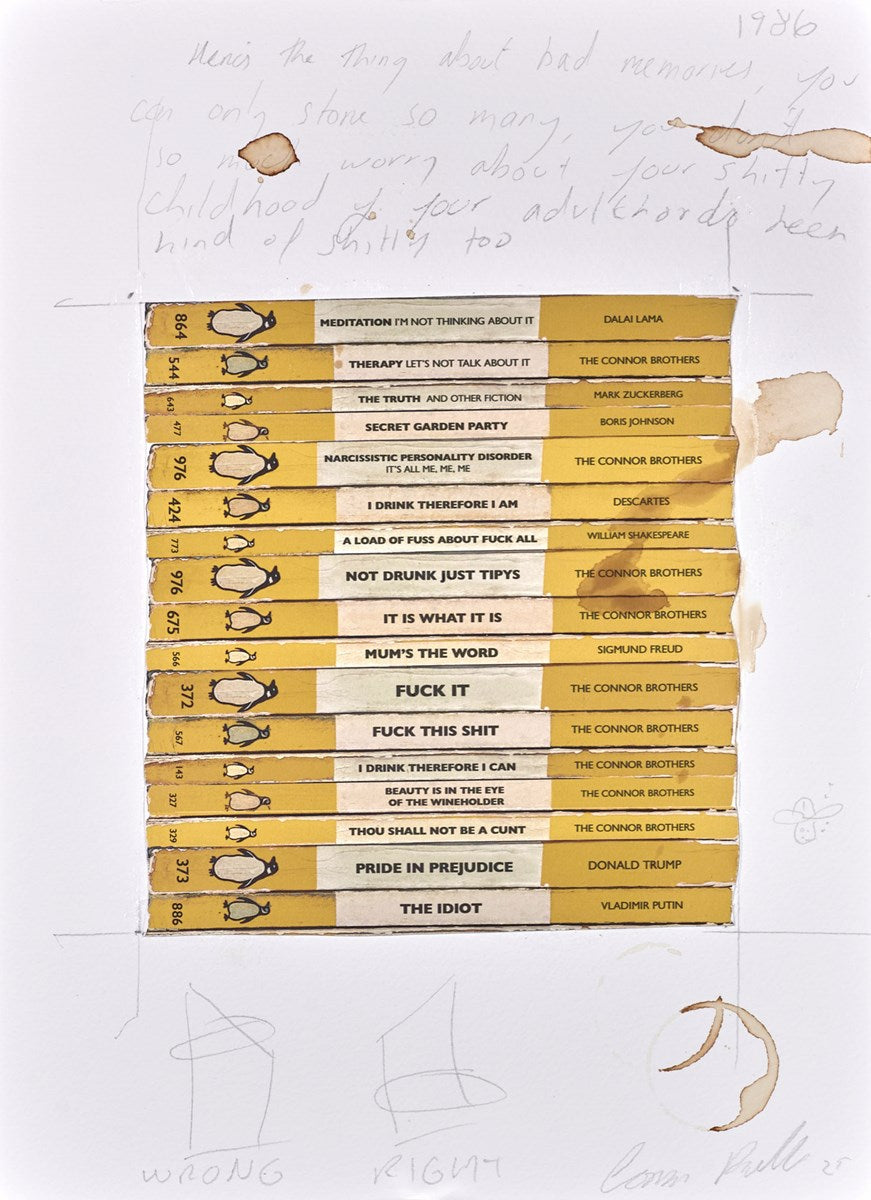 1986
Here's the thing about bad memories, you
can only store so many, you don't
so much worry about your shitty
childhood if your adulthoods been
kind of shitty too
864 MEDITATION I'M NOT THINKING ABOUT IT DALAI LAMA
544 THERAPY LET'S NOT TALK ABOUT IT THE CONNOR BROTHERS
643 THE TRUTH AND OTHER FICTION MARK ZUCKERBERG
477 SECRET GARDEN PARTY BORIS JOHNSON
976 NARCISSISTIC PERSONALITY DISORDER THE CONNOR BROTHERS
IT'S ALL ME, ME, ME
424 I DRINK THEREFORE I AM DESCARTES
773 A LOAD OF FUSS ABOUT FUCK ALL WILLIAM SHAKESPEARE
976 NOT DRUNK JUST TIPYS THE CONNOR BROTHERS
675 IT IS WHAT IT IS THE CONNOR BROTHERS
566 MUM'S THE WORD SIGMUND FREUD
372 FUCK IT THE CONNOR BROTHERS
567 FUCK THIS SHIT THE CONNOR BROTHERS
143 I DRINK THEREFORE I CAN THE CONNOR BROTHERS
327 BEAUTY IS IN THE EYE THE CONNOR BROTHERS
OF THE WINEHOLDER
329 THOU SHALL NOT BE A CUNT THE CONNOR BROTHERS
373 PRIDE IN PREJUDICE DONALD TRUMP
886 THE IDIOT VLADIMIR PUTIN
WRONG RIGHT
25